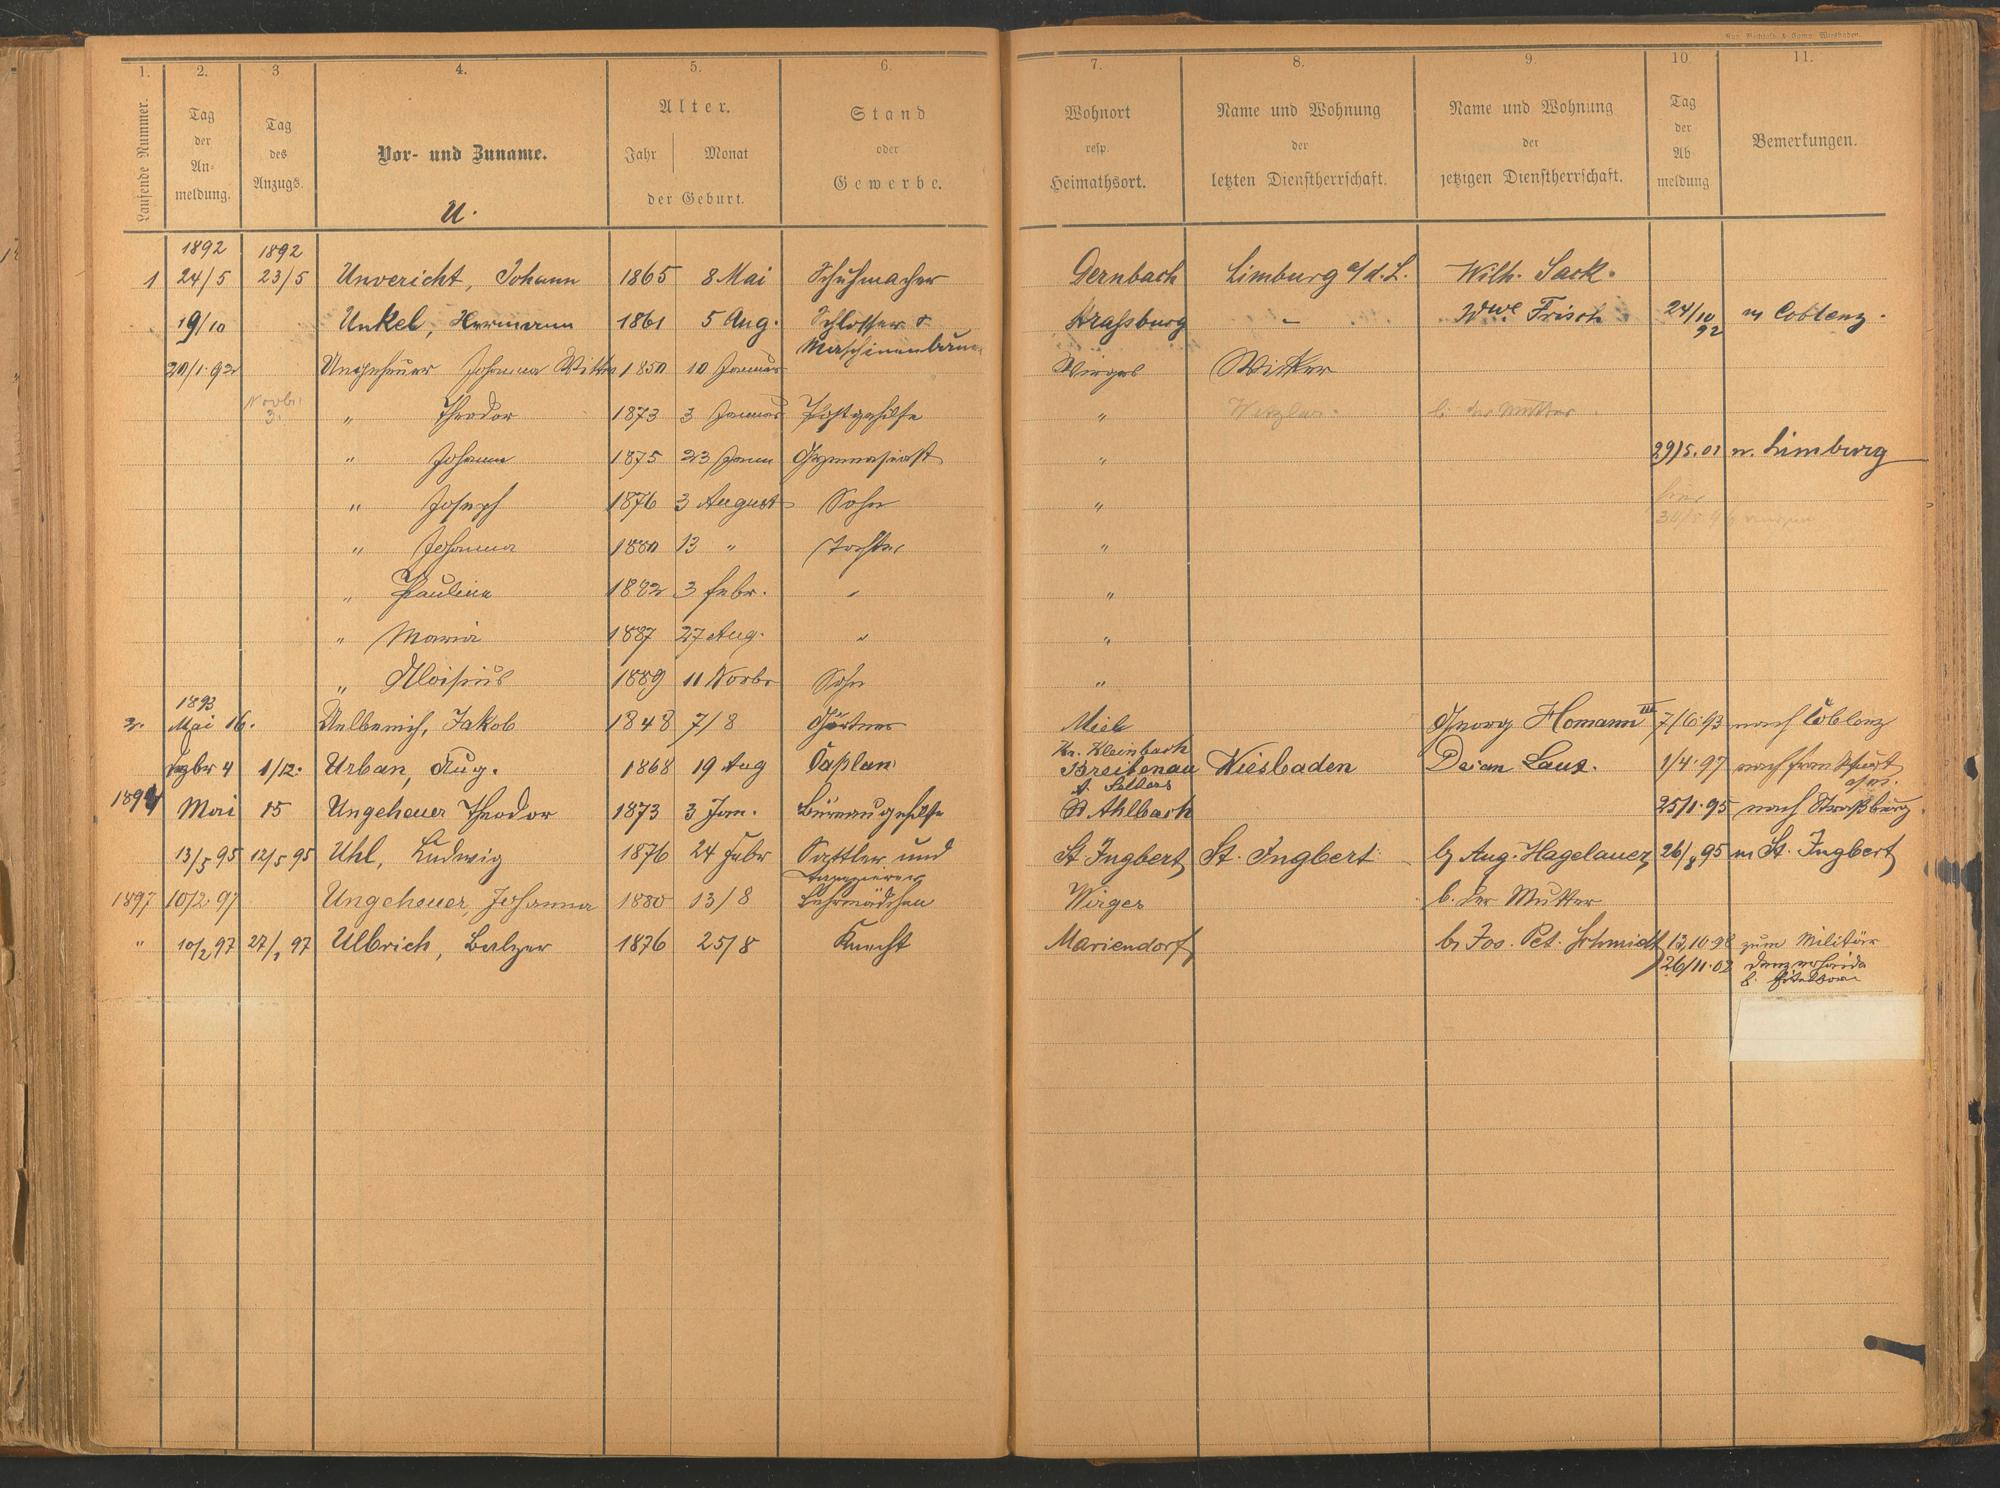 Aug. Bechtold & Comp. Wiesbaden.
1. 2. 3 4. 5. 6. 7. 8. 9. 10. 11.
Laufende Nummer.
Tag der Anmeldung.
Tag des Anzugs.
Vor- und Zuname.
Alter.
Jahr Monat
der Geburt.
Stand oder Gewerbe.
Wohnort resp. Heimathsort.
Name und Wohnung der letzten Dienstherrschaft.
Name und Wohnung der jetzigen Dienstherrschaft.
Tag der Abmeldung
Bemerkungen.
U.
1892 1892
1 24/5 23/5 Unvericht, Johann 1865 8 Mai Schuhmacher Dernbach Limburg a/d. L. Wilh. Sack.
19/10 Unkel, Hermann 1861 5 Aug. Schlosser & Wwe Frisch 24/10 92 n Coblenz.
Straßburg -
Maschinenbauer
20/1.92 Ungeheuer Johanna Wittwe 1850 10 Januar Wirges
Novbr. 3. " Theodor 1873 3 Januar Postgehilfe " Wetzlar. b. der Mutter
" Johann 1875 23 Gymnasiast " 29/5.01 n. Limburg
" Joseph 1876 3 August Sohn " hier
" Johanna 1880 13 " Tochter "
" Pauline 1882 3 Febr. " "
" Maria 1887 27 Aug. " "
" Aloisius 1889 11 Novbr Sohn "
1893
2. Mai 16. Jakob 1848 7/8 Gärtner Georg Homann III 7/6.93 nach Coblenz
4 1/12. Urban, Aug. 1868 19 Aug Caplan Breitenau Wiesbaden Decan Laux. 1/4.97 nach Frankfurt
a/m.
A. Selters
1894 Mai 15 Ungeheuer Theodor 1873 3 Jan. Büreaugehilfe Ahlbach 25/1.95 nach Straßburg.
13/5 95 12/5 95 Uhl, Ludwig 1876 24 Febr Sattler und St. Ingbert St. Ingbert b/ Aug. Hagelauer 26/8 95 n St. Ingbert
Tapezierer
1897 10/2.97 Ungeheuer, Johanna 1880 13/8 Lehrmädchen Wirges b. der Mutter
" 10/2 97 27/1 97 Ulbrich, Balzer 1876 25/8 Knecht Mariendorf b/ Jos. Pet. Schmidt 13.10.98 zum Militär
26/11.02